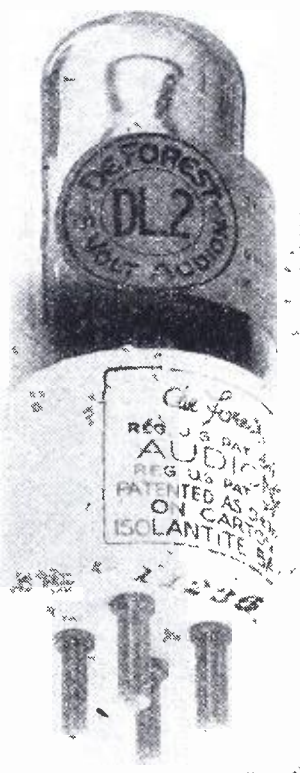 DE FOREST
DL2
5 VOLT AUDION
De Forest
REG U S PAT
AUDIO
REG US PAT
PATENTED AS
ON CAR
ISOLANTITE